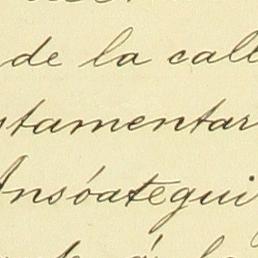 de la call
stamentar
Ansóategui